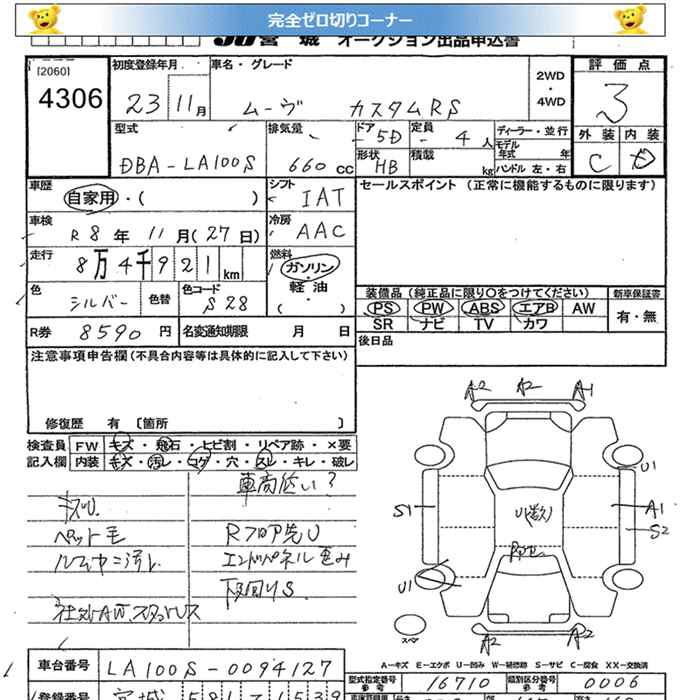 完全ゼロ切りコーナー
JU宮城 オークション出品申込書
[2060]
4306
初度登録年月
23 11月
車名・グレード
ムーヴ カスタムRS
2WD
・
4WD
評価点
3
外装 内装
C D
型式
DBA-LA100S
排気量
660 CC
ドア
5D
定員
4人
形状
HB
積載
kg
ディーラー・並行
モデル
年式 年
ハンドル 左・右
車歴
自家用・( )
シフト
IAT
セールスポイント (正常に機能するものに限ります)
車検
R8年 11月(27日)
冷房
AAC
走行
8万4千921km
燃料
ガソリン
・
軽油
( )
色
シルバー
色替
色コード
S28
装備品 (純正品に限り○をつけてください)
新車保証書
PS PW ABS エアB AW
SR ナビ TV カワ
有・無
R券 8590円
名変通知期限 月 日
後日品
注意事項申告欄(不具合内容等は具体的に記入して下さい)
修復歴 有 [箇所 ]
検査員
記入欄
FW キズ・飛石・ヒビ割・リペア跡・×要
内装 キズ・汚レ・コゲ・穴・スレ・キレ・破レ
車高低い?
キズU
ペット毛
Rフロア先U
エンドパネル歪み
下回りS
社外AW
A2 A2 A1
U1
S1
U(数)
A1
S2
U1
スペア
A2 A2
A―キズ E―エクボ U―凹み W―補修跡 S―サビ C―腐食 XX―交換済
車台番号
LA100S-0094127
型式指定番号
参考
16710
類別区分番号
参考
0006
登録番号
宮城 581